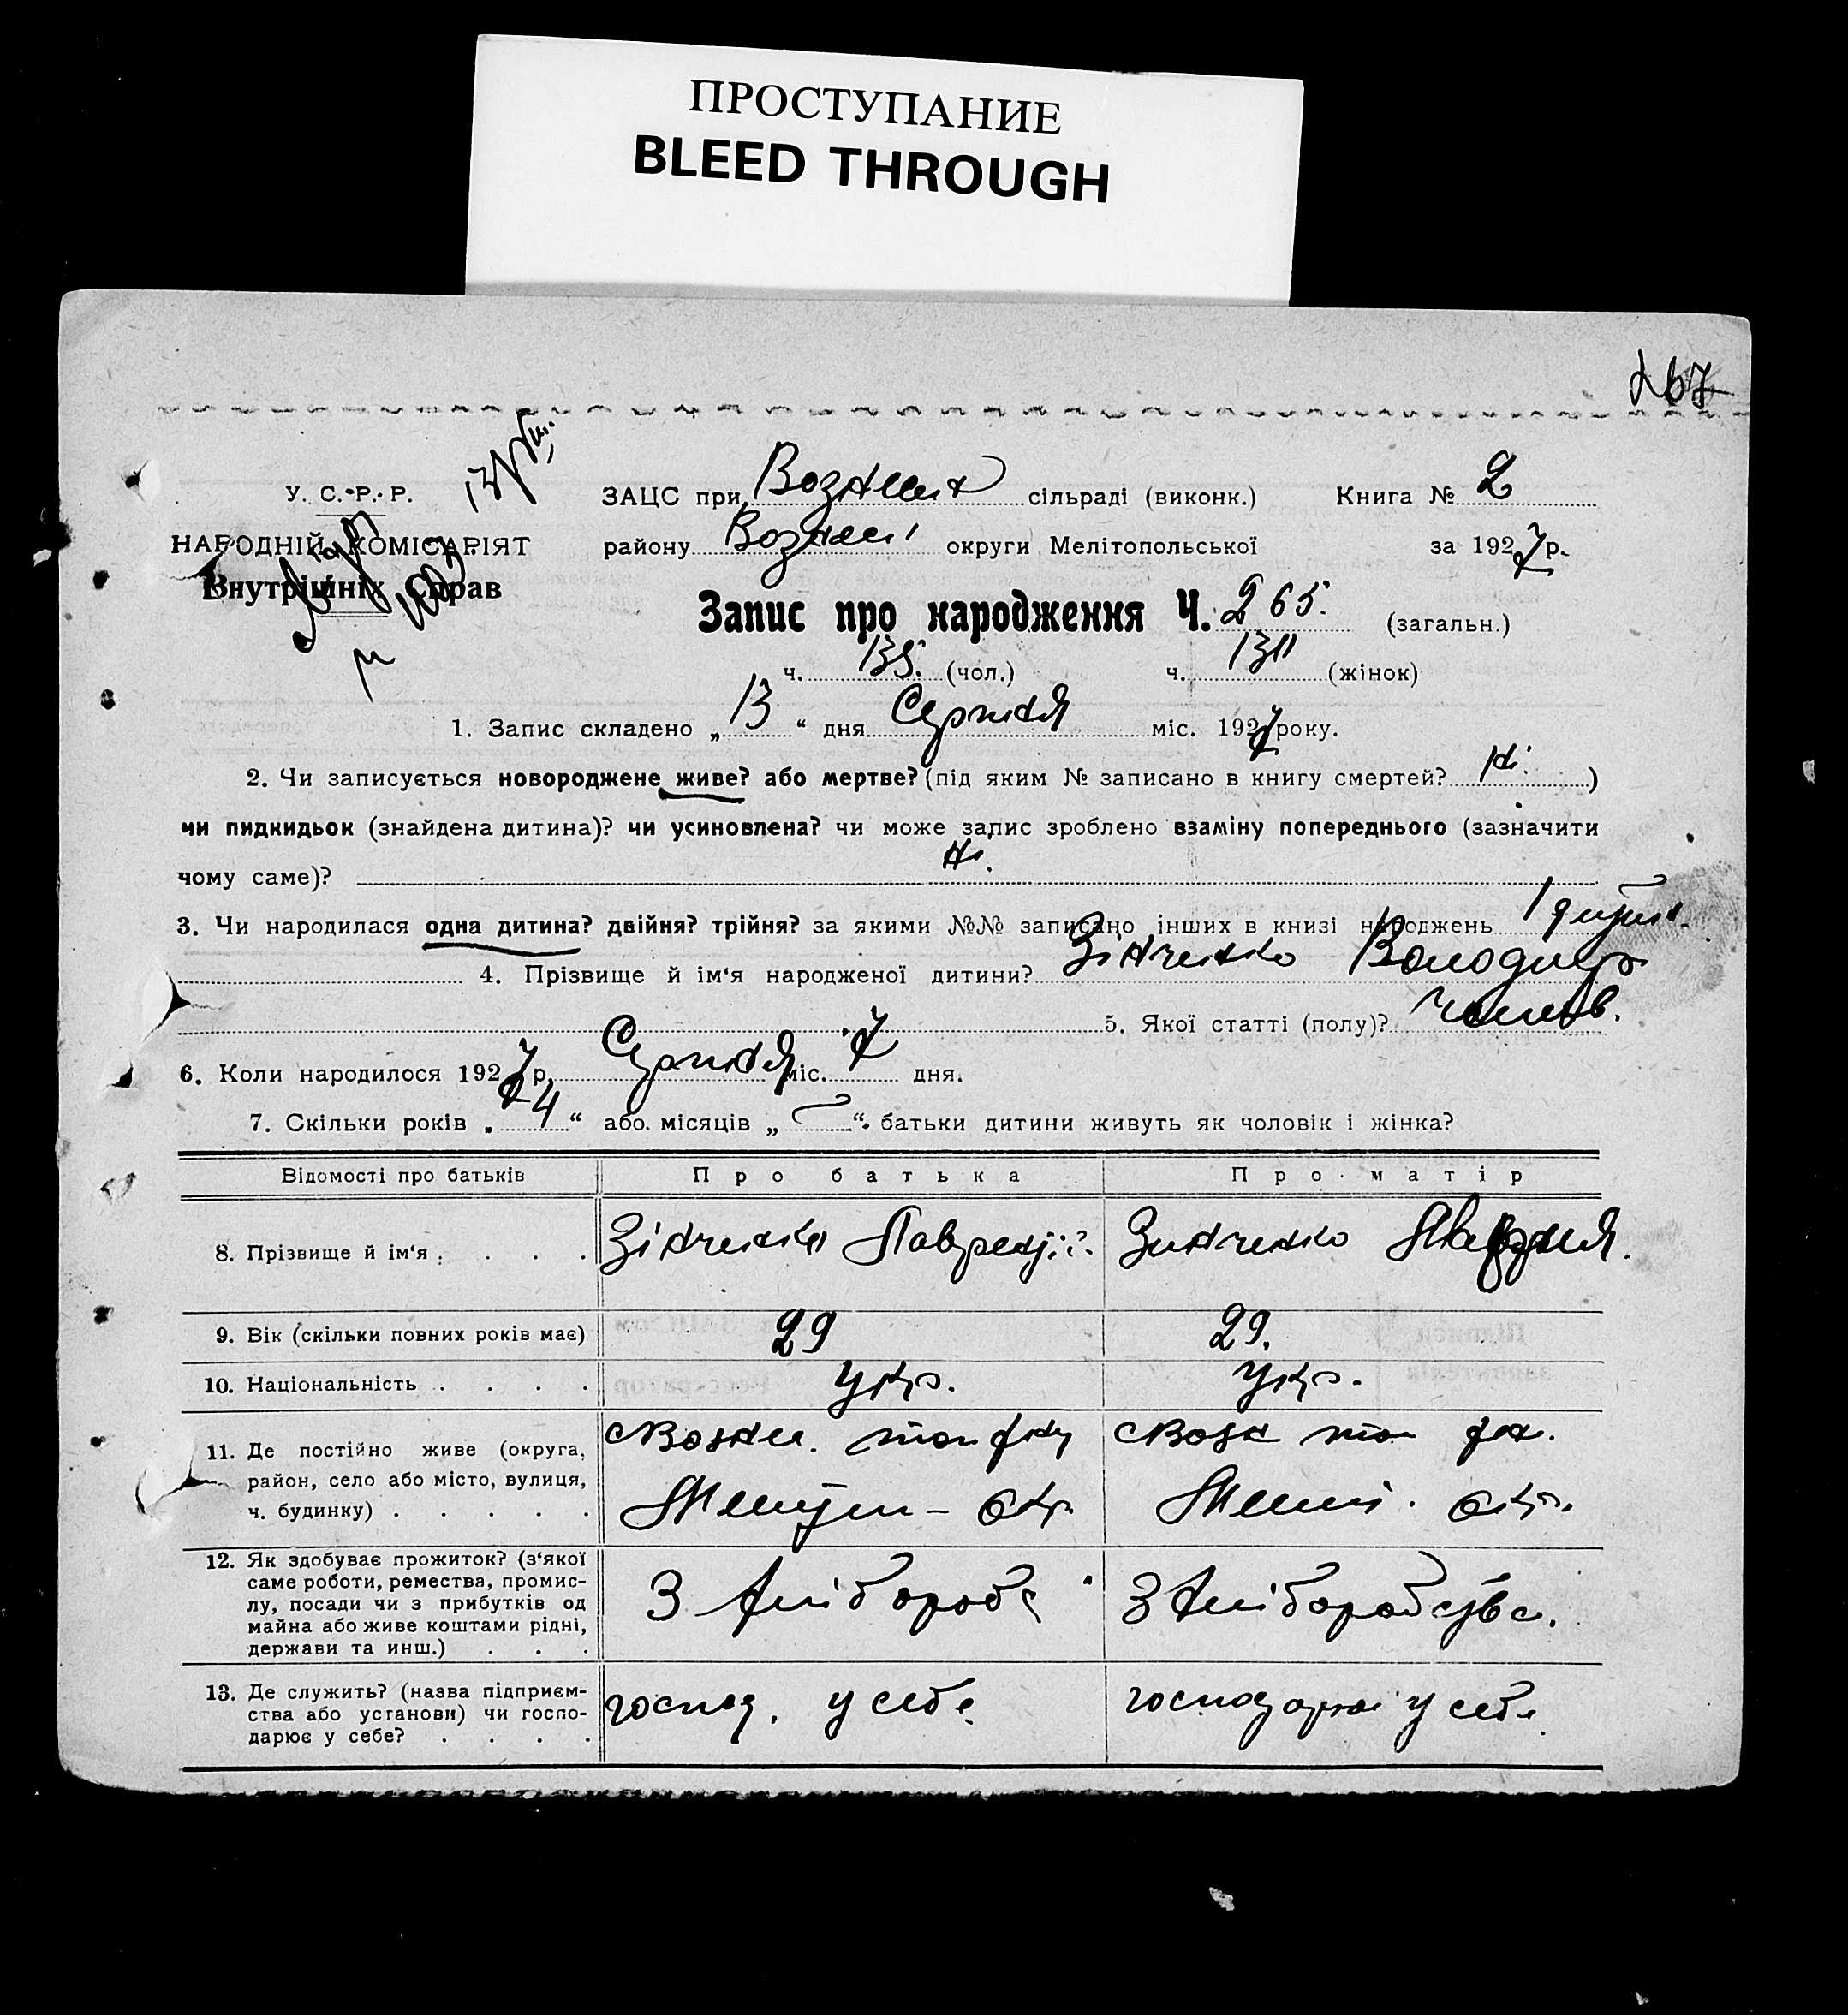 ПРОСТУПАНИЕ
BLEED THROUGH
267
У. С. Р. Р.
ЗАЦС при сільраді (виконк.) Книга № 2
НАРОДНІЙ КОМІСАРІЯТ
району округи Мелітопольської за 1927 р.
Внутрішніх Справ
Запис про народження Ч. 265. (загальн.)
ч. 135. (чол.) ч. 130 (жінок)
1. Запис складено „13“ дня Серпня міс. 1927 року.
2. Чи записується новороджене живе? або мертве? (під яким № записано в книгу смертей? ні.)
чи пидкидьок (знайдена дитина)? чи усиновлена? чи може запис зроблено взаміну попереднього (зазначити
чому саме)? ні.
3. Чи народилася одна дитина? двійня? трійня? за якими №№ записано інших в книзі народжень 1 дит
4. Прізвище й ім‘я народженої дитини? Зінченко Володимир
5. Якої статті (полу)? Чолов.
6. Коли народилося 1927 р. Серпня міс. 7 дня.
7. Скільки років „4“ або місяців „—“ батьки дитини живуть як чоловік і жінка?
Відомості про батьків Про батька Про матір
8. Прізвище й ім‘я . . . . Зінченко Зинченко
9. Вік (скільки повних років має) 29 29.
10. Національність . . . . Укр. Укр.
11. Де постійно живе (округа,
район, село або місто, вулиця,
ч. будинку) . . . . . окр. окр.
12. Як здобуває прожиток? (з‘якої
саме роботи, ремества, промис-
лу, посади чи з прибутків од
майна або живе коштами рідні,
держави та инш.) . . . З хліборобс З хліборобства.
13. Де служить? (назва підприєм-
ства або установи) чи госпо-
дарює у себе? . . . . господ. у себе господарює у себе